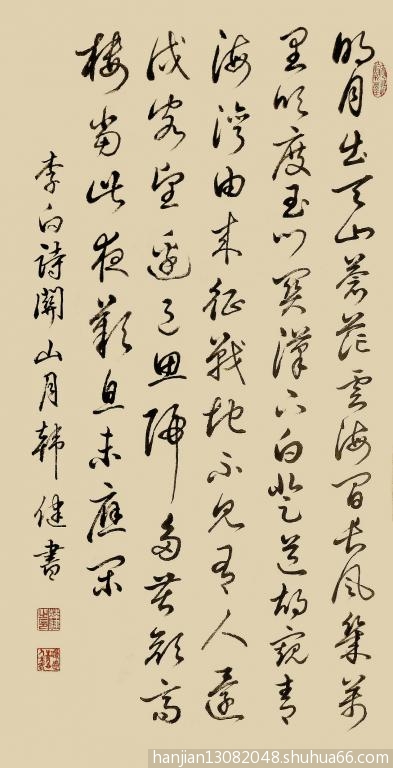 明月出天山蒼茫雲海間長風幾萬
里吹度玉門關漢下白登道胡窺青
海灣由來征戰地不見有人還
戍客望邊邑思歸多苦顏高
樓當此夜歎息未應閑
李白詩關山月韓健書
hanjian13082048.shuhua66.com